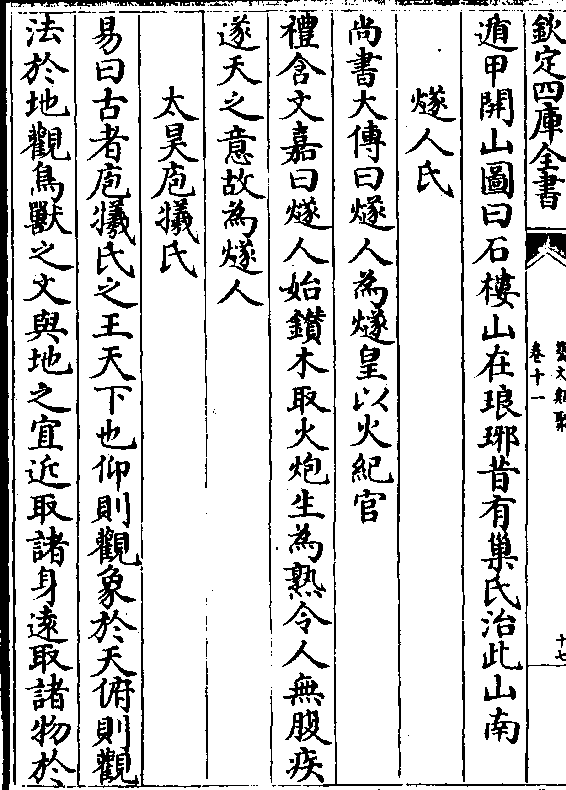 欽定四庫全書
藝文類聚
卷十一
十七
遁甲開山圖曰石樓山在琅琊昔有巢氏治此山南
燧人氏
尚書大傳曰燧人為燧皇以火紀官
禮含文嘉曰燧人始鑽木取火炮生為熟令人無腹疾
遂天之意故為燧人
太昊庖犧氏
易曰古者庖犧氏之王天下也仰則觀象於天俯則觀
法於地觀鳥獸之文與地之宜近取諸身遠取諸物於